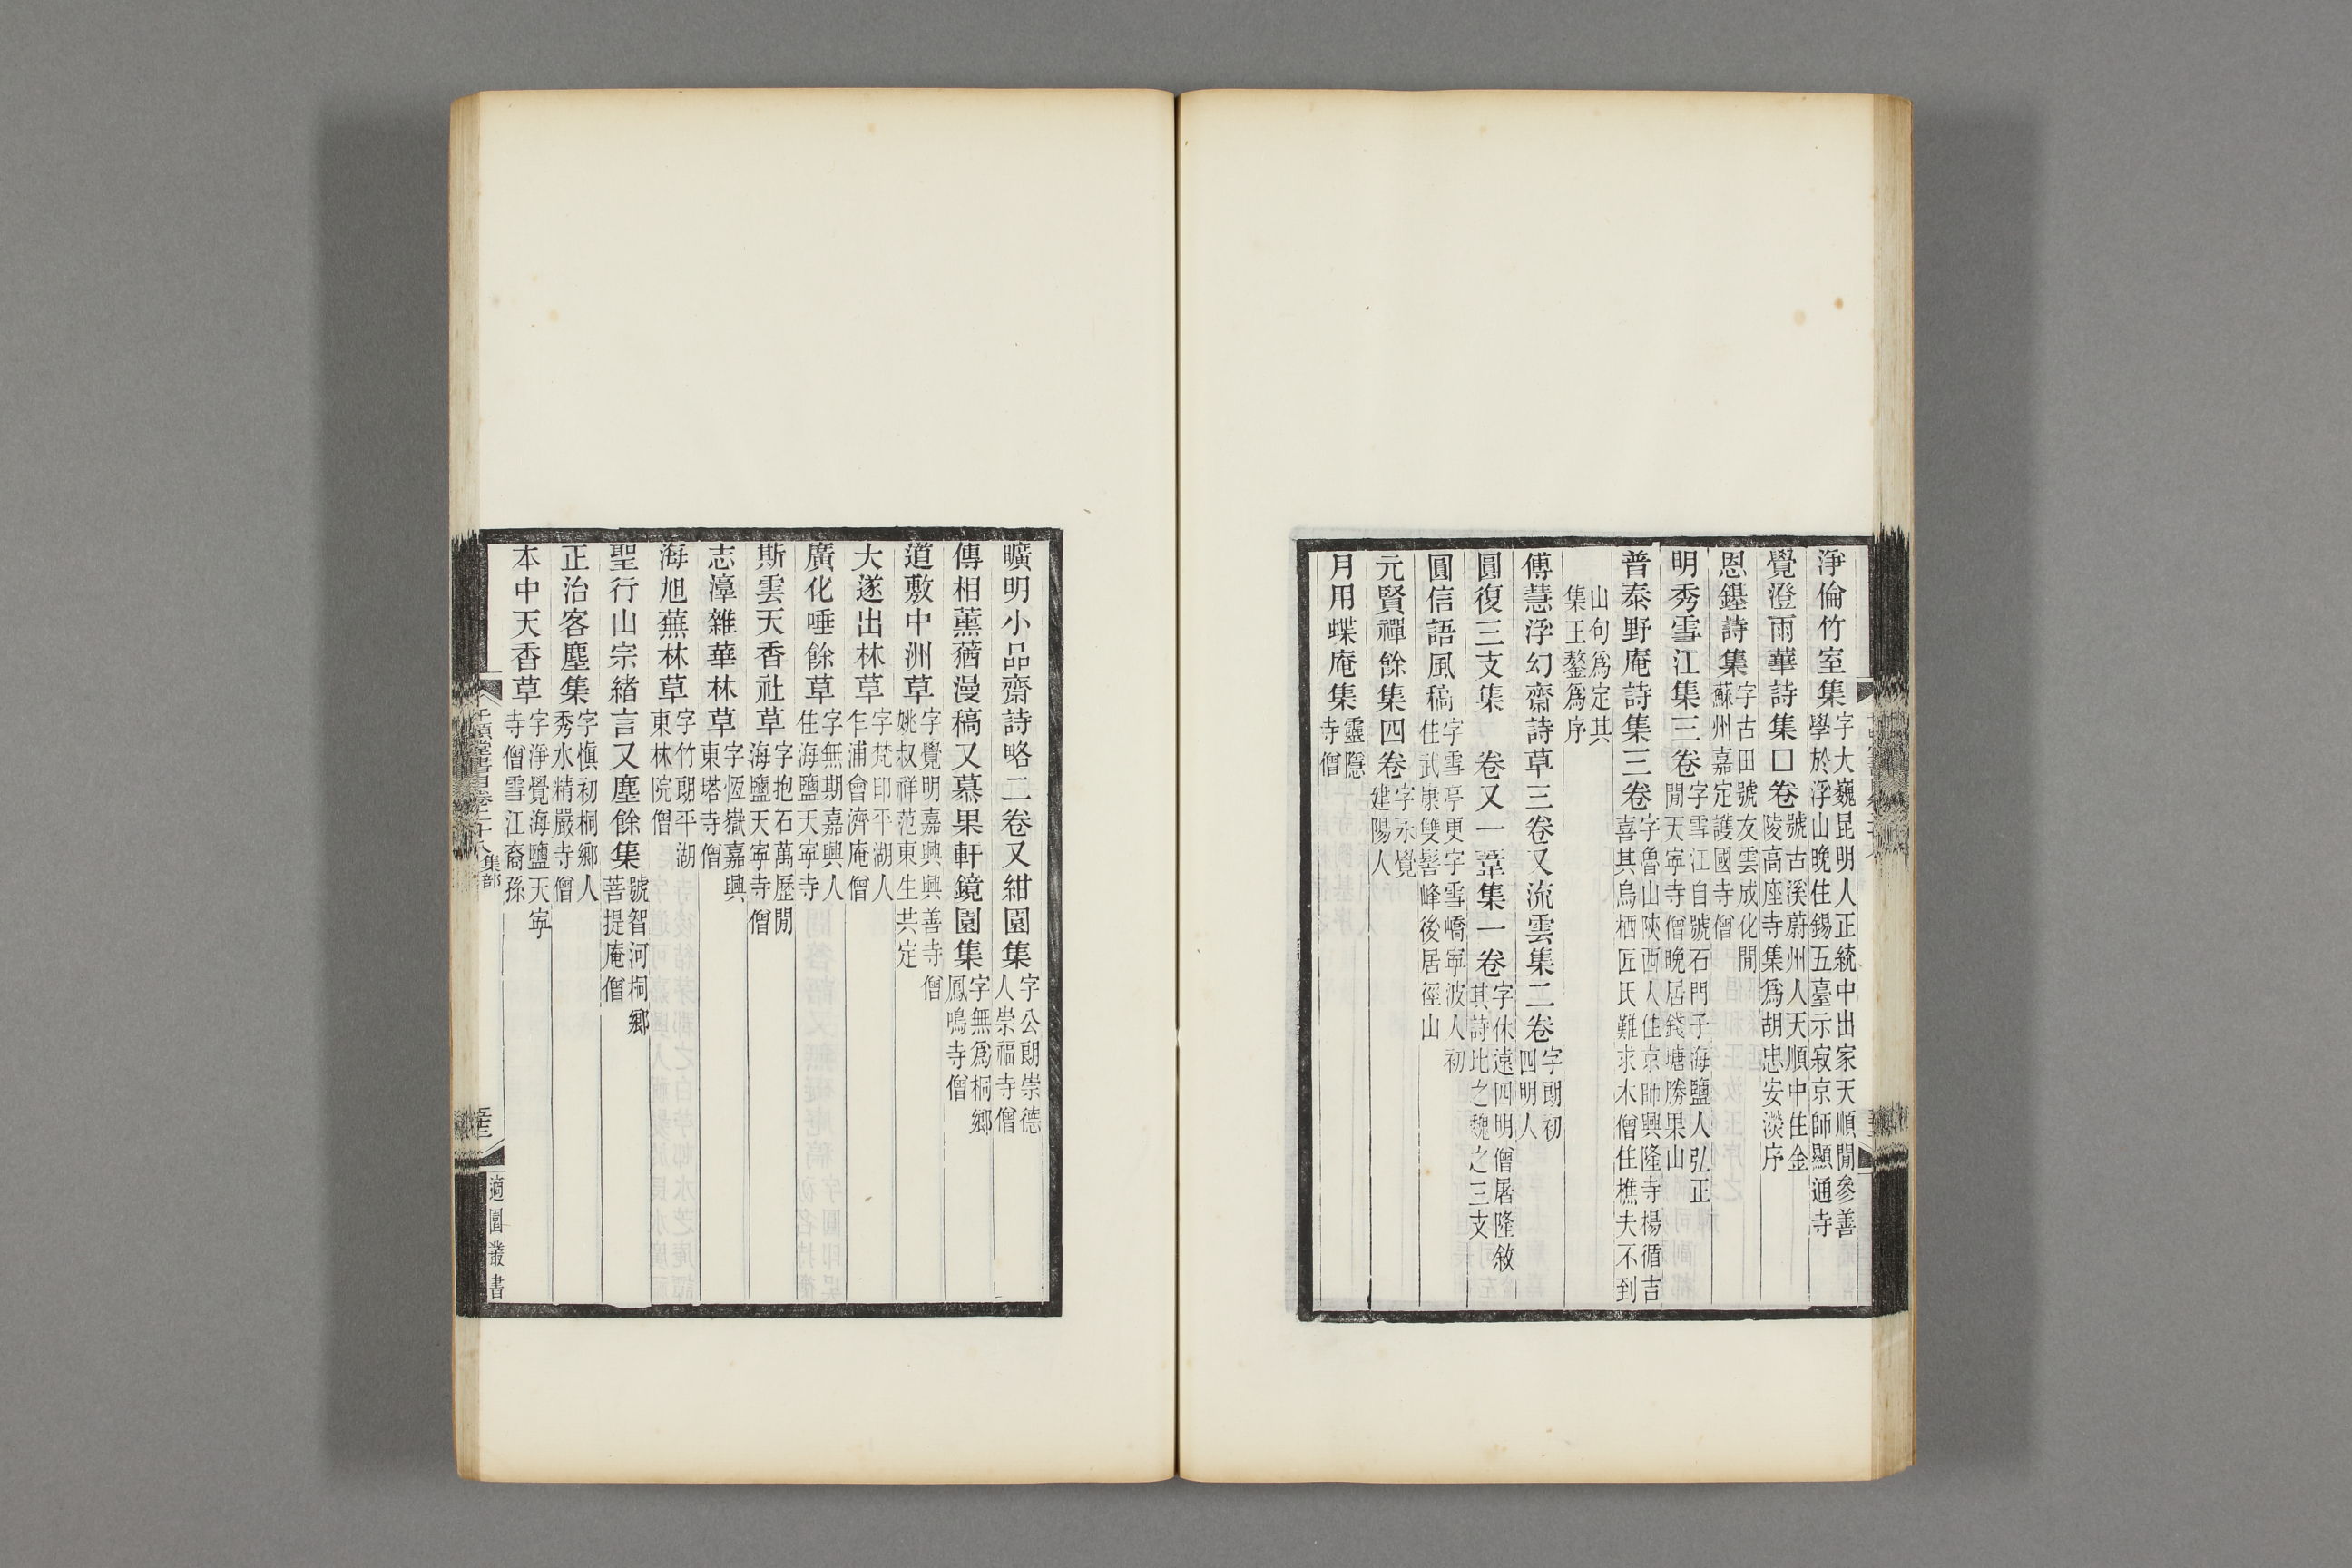 淨倫竹室集字大巍昆明人正統中出家天順閒參善學於浮山晚住錫五臺示寂京師顯通寺
覺澄雨華詩集□卷號古溪蔚州人天順中住金陵高座寺集爲胡忠安濙序
恩鑑詩集字古田號友雲成化閒蘇州嘉定護國寺僧
明秀雪江集三卷字雪江自號石門子海鹽人弘正閒天寧寺僧晚居錢塘勝果山
普泰野庵詩集三卷字魯山陝西人住京師興隆寺楊循吉喜其鳥栖匠氏難求木僧住樵夫不到
山句爲定其集王鏊爲序
傅慧浮幻齋詩草三卷又流雲集二卷字朗初四明人
圓復三支集　卷又一葦集一卷字休遠四明僧屠隆敘其詩比之魏之三支
圓信語風稿字雪亭更字雪嶠寧波人初住武康雙髻峰後居徑山
元賢禪餘集四卷字永覺建陽人
月用蝶庵集靈隱寺僧
曠明小品齋詩略二卷又紺園集字公朗崇德人崇福寺僧
傳相薰蕕漫稿又慕果軒鏡園集字無爲桐鄉鳳鳴寺僧
道敷中洲草字覺明嘉興興善寺僧姚叔祥范東生共定
大遂出林草字梵印平湖人乍浦會濟庵僧
廣化唾餘草字無期嘉興人住海鹽天寧寺
斯雲天香社草字抱石萬歷閒海鹽天寧寺僧
志漳雜華林草字恆嶽嘉興東塔寺僧
海旭蕪林草字竹朗平湖東林院僧
聖行山宗緒言又塵餘集號智河桐鄉菩提庵僧
正治客塵集字愼初桐鄉人秀水精嚴寺僧
本中天香草字淨覺海鹽天寧寺僧雪江裔孫
千頃堂書目卷二十八集部
適園叢書